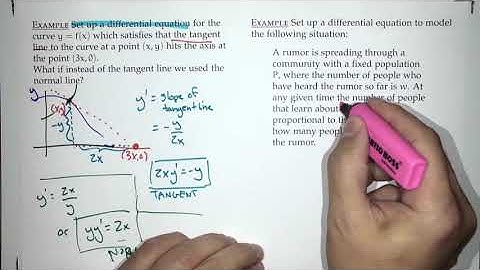 EXAMPLE Set up a differential equation for the
curve y = f(x) which satisfies that the tangent
line to the curve at a point (x, y) hits the axis at
the point (3x, 0).
What if instead of the tangent line we used the
normal line?
y
(x,y)
-y
2x
(3x,0)
y' = slope of
tangent line
= -y/2x
2xy' = -y
TANGENT
y' = 2x/y
or yy' = 2x
EXAMPLE Set up a differential equation to model
the following situation:
A rumor is spreading through a
community with a fixed population
P, where the number of people who
have heard the rumor so far is w. At
any given time the number of people
that learn about
proportional to
how many peop
the rumor.